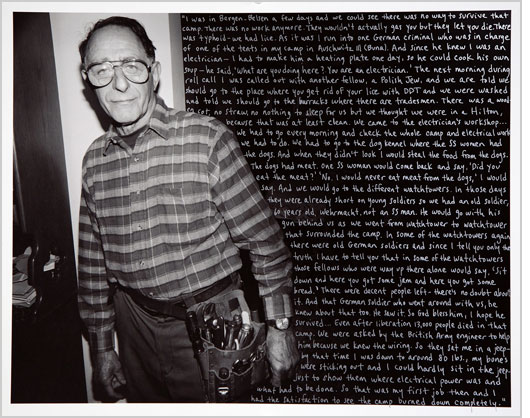 "I was in Bergen-Belsen a few days and we could see there was no way to survive that
camp. There was no work anymore. They wouldn't actually gas you but they let you die. There
was typhoid - we had lice. As it was I run into one German criminal who was in charge
of one of the tents in my camp in Auschwitz III (Buna). And since he knew I was an
electrician - I had to make him a heating plate one day, so he could cook his own
soup - he said, 'What are you doing here? You are an electrician.' The next morning during
roll call I was called out with another fellow, a Polish Jew, and we are told we
should go to the place where you get rid of your lice with DDT and we were washed
and told we should go to the barracks where there are tradesmen. There was a wood
cot, no straw, no nothing to sleep for us but we thought we were in a Hilton,
because that was at least clean. We came to the electrician's workshop...
we had to go every morning and check the whole camp and electrical work
we had to do. We had to go to the dog kennel where the SS women had
the dogs. And when they didn't look I would steal the food from the dogs.
The dogs had meat. One SS woman would come back and say, 'Did you
eat the meat?' 'No. I would never eat meat from the dogs,' I would
say. And we would go to the different watchtowers. In those days
they were already short on young soldiers so we had an old soldier,
60 years old, Wehrmacht, not an SS man. He would go with his
gun behind us as we went from watchtower to watchtower
that surrounded the camp. In some of the watchtowers again
there were old German soldiers and since I tell you only the
truth I have to tell you that in some of the watchtowers
those fellows who were way up there alone would say, 'Sit
down and here you got some jam and here you got some
bread.' There were decent people left - there's no doubt about
it. And that German soldier who went around with us, he
knew about that too. He saw it. So God bless him, I hope he
survived... Even after liberation 13,000 people died in that
camp. We were asked by the British Army engineer to help
him because we knew the wiring. So they sat me in a jeep -
by that time I was down to around 80 lbs., my bones
were sticking out and I could hardly sit in the jeep -
just to show them where electrical power was and
what had to be done. So that was my first job then and I
had the satisfaction to see the camp burned down completely."